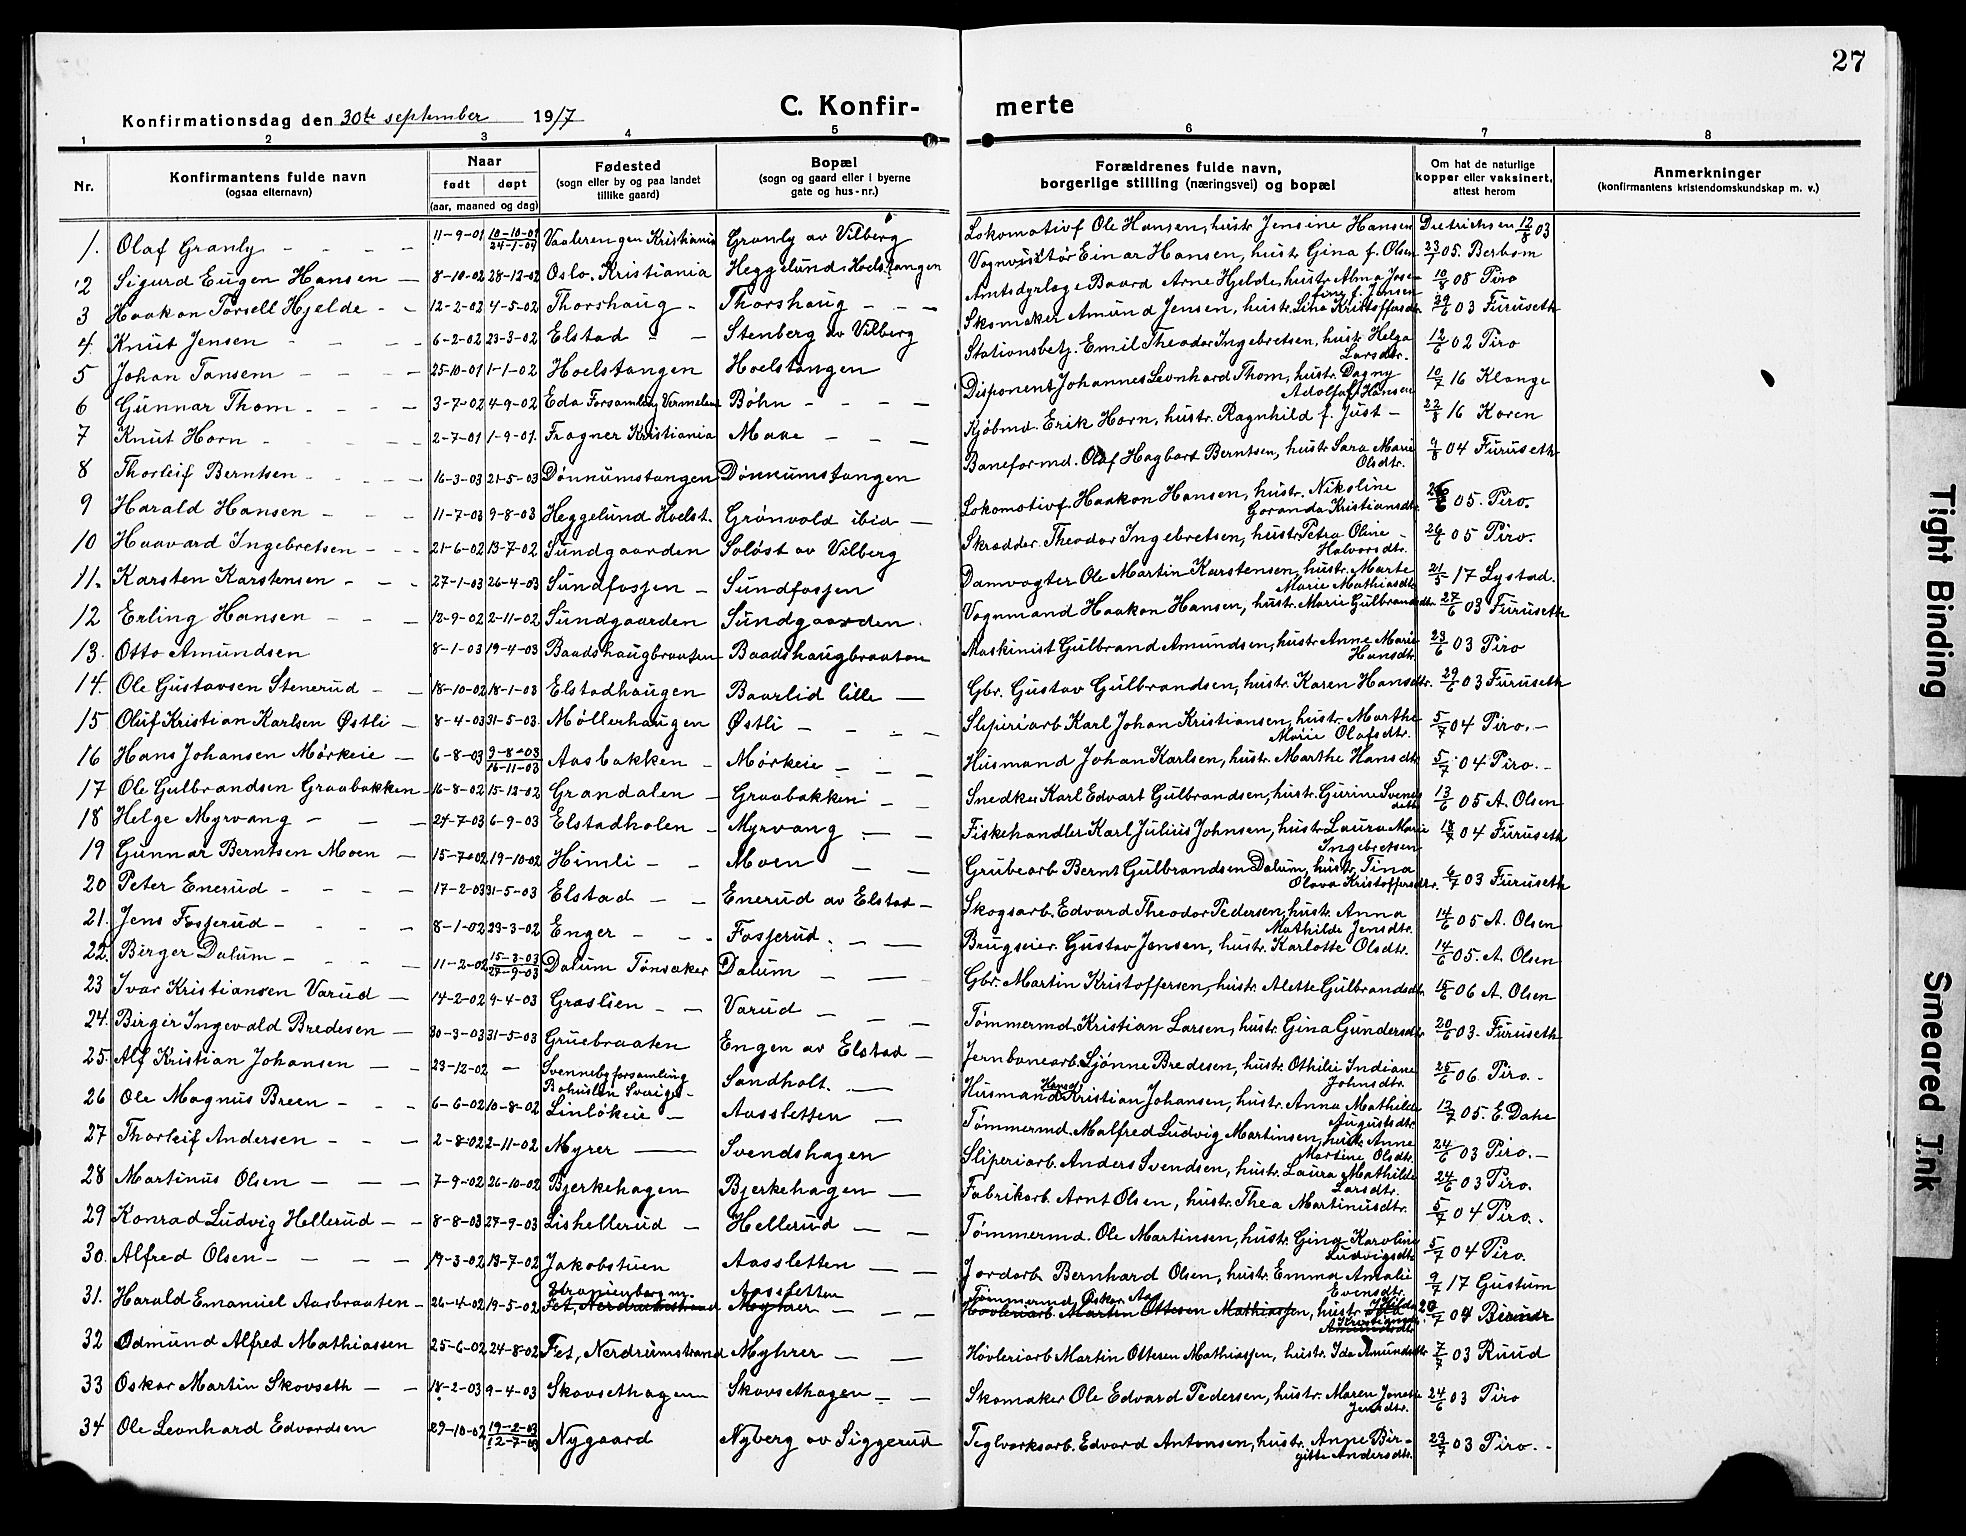 27
Konfirmationsdag den 30te september 1917
C. Konfirmerte
1 2 3 4 5 6 7 8
Nr. | Konfirmantens fulde navn (ogsaa efternavn) | Naar født døpt (aar, maaned og dag) | Fødested (sogn eller by og paa landet tillike gaard) | Bopæl (sogn og gaard eller i byerne gate og hus-nr.) | Forældrenes fulde navn, borgerlige stilling (næringsvei) og bopæl | Om hat de naturlige kopper eller vaksinert, attest herom | Anmerkninger (konfirmantens kristendomskundskap m. v.)
1. Olaf Granly 11-9-01 10-10-01 24-1-04 Vaalerengen Kristiania Granly av Vilberg Lokomotivf Ole Hansen, hustr. Jensine Hansen Dietrichsen 12/8 03
2 Sigurd Eugen Hansen 8-10-02 28-12-02 Oslo. Kristiania Heggelund. Hoelstangen Vognvisitør Einar Hansen, hustr. Gina f. Olsen 23/7 05. Berbom
3 Haakon Torsell Hjelde 12-2-02 4-5-02 Thorshaug Thorshaug Amtsdyrlæge Baard Arne Hjelde, hustr. Alma Josefine f. Jensen 10/8 08 Piro
4. Knut Jensen 6-2-02 23-3-02 Elstad Stenberg av Vilberg Skomaker Amund Jensen, hustr. Lina Kristoffersdtr. 29/6 03 Furuseth
5 Johan Tansem 25-10-01 1-1-02 Hoelstangen Hoelstangen Stationsbetj. Emil Theodor Ingebretsen, hustr. Helga Larsdtr. 12/6 02 Piro
6 Gunnar Thom 3-7-02 4-9-02 Eda Forsamling Vermeland Bøhn Disponent Johannes Leonhard Thom, hustr. Dagny Adolfa f. Hansen 10/7 16 Klange
7 Knut Horn 2-7-01 1-9-01. Frogner Kristiania Moae Kjøbmd. Erik Horn, hustr. Ragnhild f. Just 22/8 16 Koren
8 Thorleif Berntsen 16-3-03 21-5-03 Dønnumstangen Dønnumstangen Baneformd. Olaf Hagbart Berntsen, hustr. Sara Marie Olsdtr. 9/8 04 Furuseth
9 Harald Hansen 11-7-03 9-8-03 Heggelund Hoelst. Grønvold ibid Lokomotivf. Haakon Hansen, hustr. Nikoline Goranda Kristiansdtr. 05. Piro.
10 Haavard Ingebretsen 21-6-02 13-7-02 Sundgaarden Soløst av Vilberg Skrædder. Theodor Ingebretsen, hustr. Petra Oline Halvorsdtr. 26/6 05 Piro.
11. Karsten Karstensen 27-1-03 26-4-03 Sundfossen Sundfossen Damvogter Ole Martin Karstensen, hustr. Marte Marie Mathiasdtr. 21/5 17 Lystad.
12 Erling Hansen 12-9-02 2-11-02 Sundgaarden Sundgaarden. Vognmand Haakon Hansen, hustr. Marie Gulbrandsdtr. 27/6 03 Furuseth
13. Otto Amundsen 8-1-03 19-4-03 Baadshaugbraaten Baadshaugbraaten Maskinist Gulbrand Amundsen, hustr. Anne Marie Hansdtr. 23/6 03 Piro
14. Ole Gustavsen Stenerud 18-10-02 18-1-03 Elstadhaugen Baarlid lille Gbr. Gustav Gulbrandsen, hustr. Karen Hansdtr. 29/6 03 Furuseth
15 Oluf Kristian Karlsen Østli 8-4-03 31-5-03. Møllerhaugen Østli Sliperiarb. Karl Johan Kristiansen, hustr. Marthe Marie Olafsdtr. 5/7 04 Piro.
16 Hans Johansen Mørkeie 6-8-03 9-8-03 16-11-03 Aasbakken Mørkeie Husmand Johan Karlsen, hustr. Marthe Hansdtr. 5/7 04 Piro.
17 Ole Gulbrandsen Graabakken 16-8-02 15-12-02 Grandalen Graabakken Snedker Karl Edvart Gulbrandsen, hustr. Gurine Svensdatt. 13/6 05 A. Olsen
18 Helge Myrvang 24-7-03 6-9-03 Elstadholen Myrvang Fiskehandler Karl Julius Johnsen, hustr. Laura Marie Ingebretsen 18/7 04 Furuseth
19 Gunnar Berntsen Moen 15-7-02 19-10-02 Himli Moen Grubearb Bernt Gulbrandsen Dalum, hustr. Tina Olava Kristoffersdtr. 6/7 03 Furuseth
20 Peter Enerud 17-2-03 31-5-03 Elstad Enerud av Elstad Skogsarb. Edvard Theodor Pedersen, hustr. Anna Mathilde Jensdtr. 14/6 05 A. Olsen
21. Jens Fosserud 8-1-02 23-3-02 Enger Fosserud. Brugseier. Gustav Jensen, hustr. Karlotte Olsdtr. 14/6 05. A. Olsen
22. Birger Dalum 11-2-02 15-3-03 27-9-03 Dalum Tønsaker Dalum Gbr. Martin Kristoffersen, hustr. Alette Gulbrandsdtr. 15/6 06 A. Olsen
23 Ivar Kristiansen Varud 14-2-02 9-4-03 Graslien Varud Tømmermd. Kristian Larsen, hustr. Gina Gundersdtr. 20/6 03. Furuseth
24. Birger Ingevald Bredesen 30-3-03 31-5-03 Gruebraaten Engen av Elstad Jernbanearb. Sjønne Bredesen, hustr. Othilie Indiane Johnsdtr. 25/6 06. Piro.
25. Alf Kristian Johansen 23-12-02 — Svennebyforsamling Bohuslen Sverige Sandholt. Husmand Hansof Kristian Johansen, hustr. Anna Mathilde Augustsdtr. 12/7 05. E. Dahe
26 Ole Magnus Breen 6-6-02 10-8-02 Linløkeie Aassletten Tømmermd. Malfred Ludvig Martinsen, hustr. Anne Martine Olsdtr. 24/6 03 Piro.
27 Thorleif Andersen 2-8-02 2-11-02 Myrer Svendshagen Sliperiarb. Anders Svendsen, hustr. Laura Mathilde Larsdtr. 24/6 03 Piro.
28 Martinus Olsen 7-9-02 26-10-02 Bjerkehagen Bjerkehagen Fabrikarb. Arnt Olsen, hustr. Thea Martinusdtr. 5/7 04 Piro.
29 Konrad Ludvig Hellerud 8-8-03 27-9-03 Lishellerud Hellerud Tømmermd. Ole Martinsen, hustr. Gina Karoline Ludvigsdtr. 5/7 04 Piro.
30. Alfred Olsen 19-3-02 13-7-02 Jakobstuen Aassletten Jordarb. Bernhard Olsen, hustr. Emma Amalie Evensdtr. 9/7 17 Gustum
31. Harald Emanuel Aasbraaten 26-4-02 19-5-02 Fet, Nerdrumstrand Aassletten Myhrer Tømmermd. Oskar Aas Høvleriarb. Martin Ottesen Mathiassen, hustr. Hilda Amundsdtr. 20/7 04
32 Odmund Alfred Mathiassen 25-6-02 24-8-02 Fet, Nerdrumstrand Myhrer Høvleriarb Martin Ottesen Mathiassen, hustr. Ida Amundsdtr 7/7 03 Ruud
33 Oskar Martin Skovseth 18-2-03 9-4-03 Skovsethagen Skovsethagen Skomaker Ole Edvard Pedersen, hustr. Maren Jonette Jensdtr. 24/6 03 Piro
34 Ole Leonhard Edvardsen 29-10-02 19-2-03 12-7-03 Nygaard Nyberg av Siggerud Teglverksarb. Edvard Antonsen, hustr. Anne Birgitte Andersdtr. 23/7 03 Piro.
Tight Binding
Smeared Ink